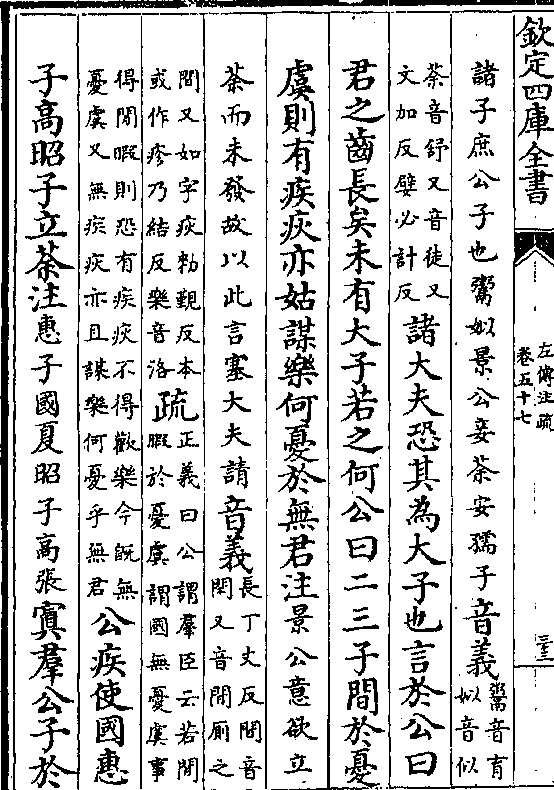 欽定四庫全書
左傳注疏
卷五十七
諸子庶公子也鬻姒景公妾荼安孺子音義鬻音育
姒音似
荼音舒又音徒又
文加反嬖必計反諸大夫恐其為大子也言於公曰
君之齒長矣未有大子若之何公曰二三子間於憂
虞則有疾疢亦姑謀樂何憂於無君注景公意欲立
荼而未發故以此言塞大夫請音義長丁丈反間音
閑又音間厠之
間又如字疢勑覲反本
或作疹乃結反樂音洛疏正義曰公謂羣臣云若閒
暇於憂虞謂國無憂虞事
得閒暇則恐有疾疢不得歡樂今既無
憂虞又無疾疢亦且謀樂何憂乎無君公疾使國惠
子高昭子立荼注惠子國夏昭子高張寘羣公子於